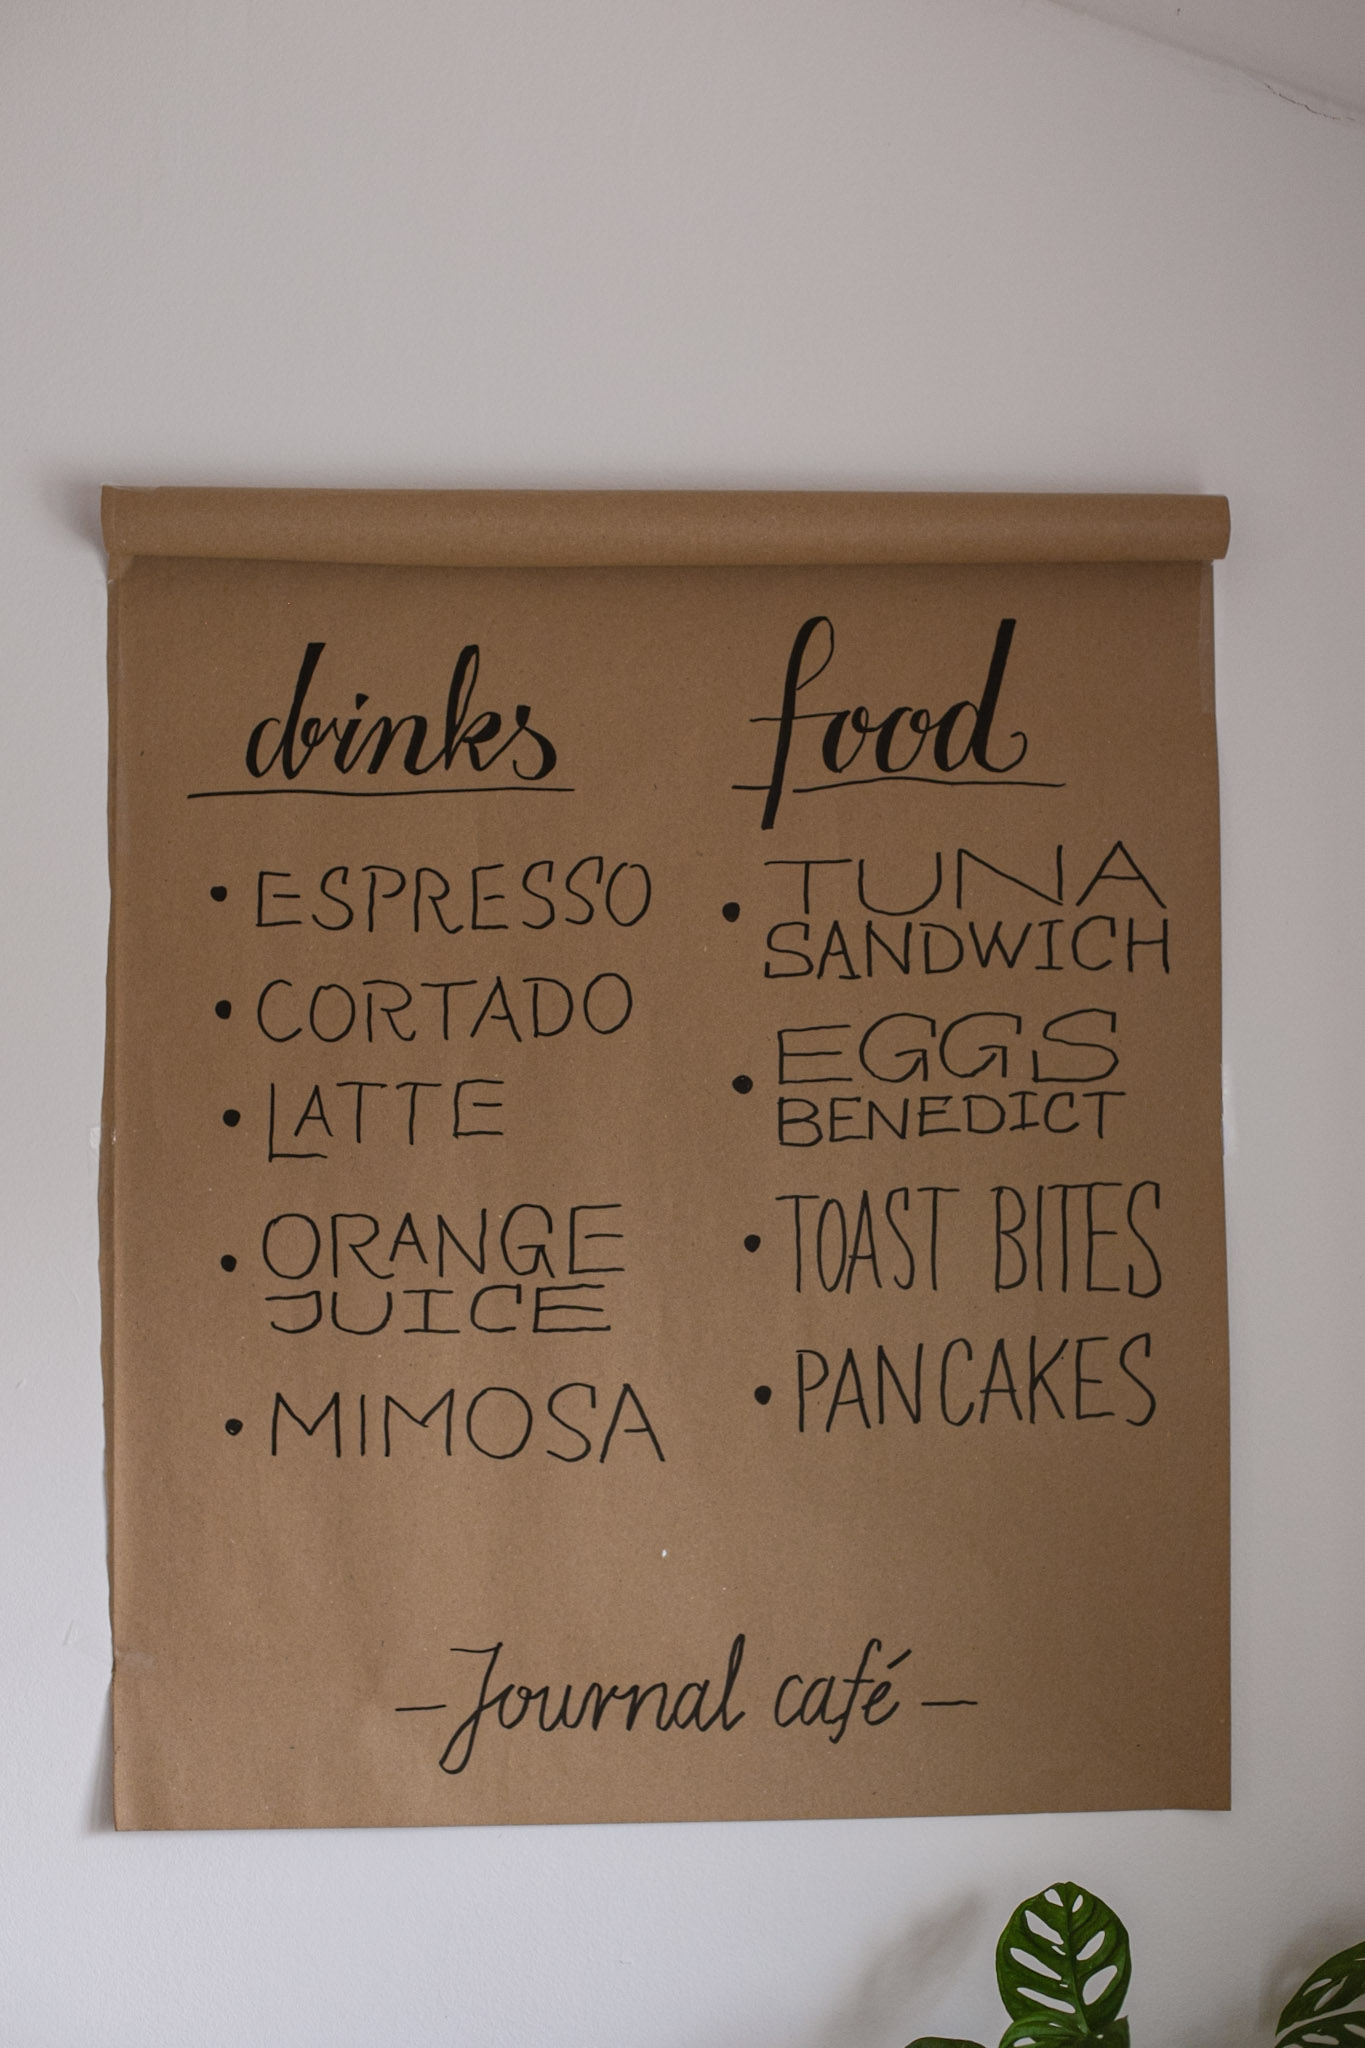 drinks
• ESPRESSO
• CORTADO
• LATTE
• ORANGE
JUICE
• MIMOSA
food
• TUNA
SANDWICH
• EGGS
BENEDICT
• TOAST BITES
• PANCAKES
– Journal café –